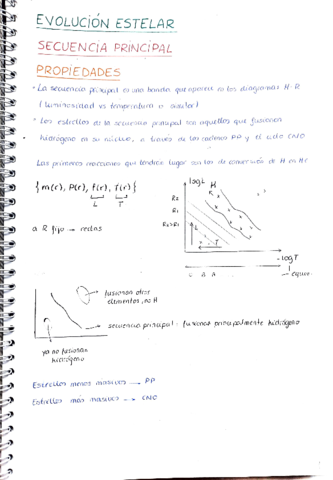 EVOLUCIÓN ESTELAR
SECUENCIA PRINCIPAL
PROPIEDADES
· La secuencia principal es una banda que aparece en los diagramas H-R
(luminosidad vs temperatura o color)
· Las estrellas de la secuencia principal son aquellas que fusionan
hidrógeno en su núcleo, a través de las cadenas PP y el ciclo CNO
Las primeras reacciones que tendrán lugar son las de conversión de H en He
{m(r), P(r), l(r), T(r)}
L T
log L
R2
R1
R2>R1
L
T
-log T
a R fijo → rectas
fusionan otros
elementos, no H
secuencia principal: fusiona principalmente hidrógeno
ya no fusionan
hidrógeno
Estrellas menos masivas → PP
Estrellas más masivas → CNO